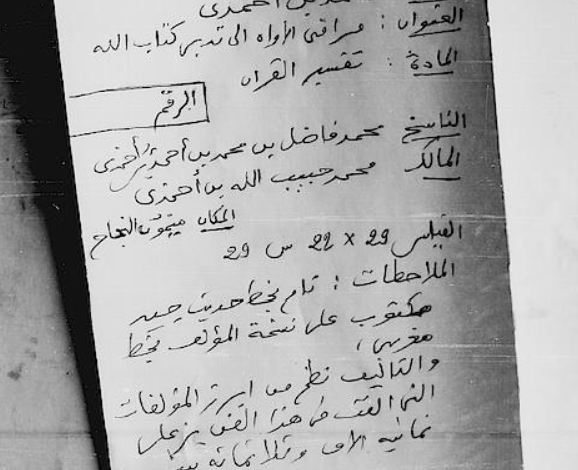 أحمدي
العنوان : مراقى الأواه الى تدبر كتاب الله
المادة : تفسير القرآن
الرقم
الناسخ محمد فاضل بن محمد بن أحمدي
المالك محمد حبيب الله بن أحمدي
المكان ميمون النجاح
القياس 29 × 22 س 29
الملاحظات : تام بخط حديث جيد
مكتوب على نسخة المؤلف بخط
مغربي ،
والتأليف نظم من ابرز المؤلفات
التي الفت في هذا الفن يزيد على
ثمانية الاف وثلاثمائة